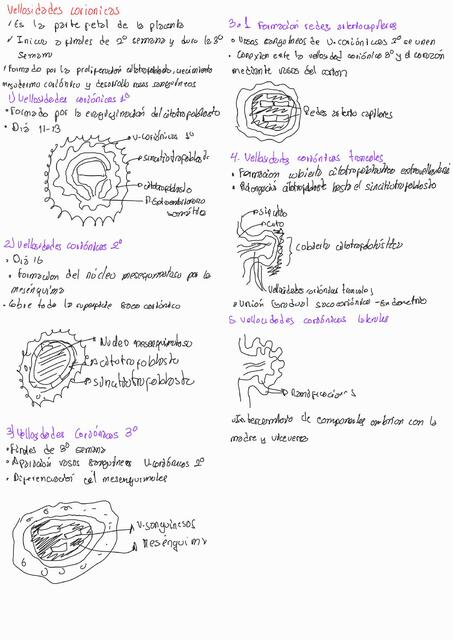 Vellosidades corionicas
✓ Es la parte fetal de la placenta
✓ Inicio a finales de 2º semana y dura la 3º
semana
✓ Formado por la proliferación citotrofoblasto, crecimiento
mesodermo coriónico y desarrollo vasos sanguineos
1) Vellosidades coriónicas 1º
• Formado por la del citotrofoblasto
• Día 11-13
v. coriónicas 1º
sincitiotrofoblasto
citotrofoblasto
somático
2) Vellosidades coriónicas 2º
• Día 16
• Formación del núcleo mesenquimatoso por la
mesénquima
• Cubre toda la superficie saco coriónico
Nucleo mesenquimatoso
citotrofoblasto
sincitiotrofoblasto
3) Vellosidades Coriónicas 3º
• Finales de 3º semana
• Aparición vasos sanguineos V. coriónicas 2º
• Diferenciación cél mesenquimales
V. sanguineos
Mesénquima
3.1 Formación redes arteriocapilares
• Vasos sanguineos de V. coriónicas 3º se unen
• Conexion entre la vellosidad coriónica 3º y el corazón
mediante vasos del corion
Redes arterio capilares
4. Vellosidades coriónicas troncales
• Formación cubierta citotrofoblástica extravellositaria
• Prolongación citotrofoblasto hasta el sincitiotrofoblasto
cubierta citotrofoblástica
Vellosidades coriónicas troncales
• Unión gradual saco coriónico - Endometrio
5. Vellocidades coriónicas laterales
Ramificaciones
• Intercambio de componentes embrion con la
madre y viceversa